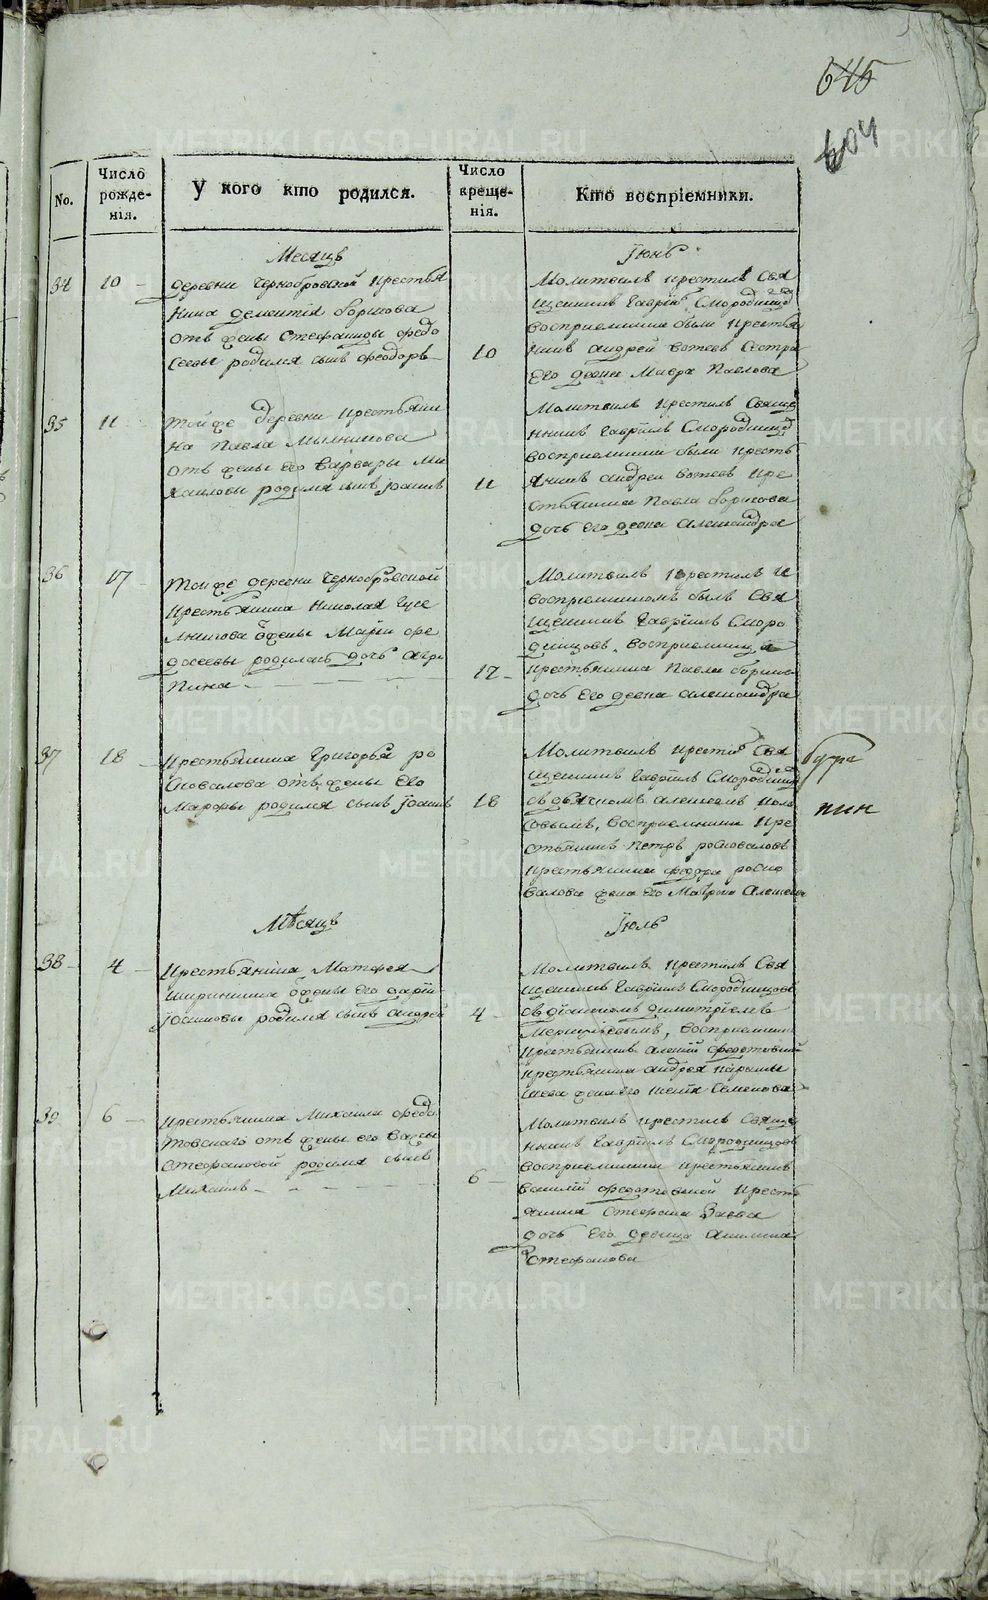 645
604
No.
Число рожде-
нія.
У кого кто родился.
Число
креще-
нія.
Кто воспріемники.
Месяцъ
Іюнь
34
10
деревни Чернобровской крестья
нина дементія
отъ жены Стефаниды федо
сеевы родился сынъ феодоръ
10
Молитвилъ крестилъ Свя
щенникъ Гавріилъ Смородинцовъ
восприемники были крестья
нинъ андрей сестра
его девка Мавра Павлова
35
11
тойже деревни крестьяни
на Павла Мыльникова
отъ жены его Варвары Ми
хаиловы родился сынъ Іоаннъ
11
Молитвилъ крестилъ Священ
никъ Гавріилъ Смородинцовъ
восприемники были кресть
янинъ андреи кре
стьянина Павла
дочь его девка александра
36
17
тойже деревни Чернобровской
крестьянина Николая Гусе
льникова жены Маріи фе
досеевы родилась дочь агри
пина
17
Молитвилъ крестилъ и
восприемникомъ былъ Свя
щенникъ Гавріилъ Сморо
динцовъ, восприемница
крестьянина Павла
дочь его девка александра
37
18
крестьянина Григорья ро
сковалова отъ жены его
Марфы родился сынъ Іоаннъ
18
Молитвилъ крестилъ Свя
щенникъ Гавріилъ Смородинцовъ
съ дьячкомъ алексеемъ
восприемники кре
стьянинъ Петръ росковаловъ
крестьянина федора роско
валова жена его
Мѣсяцъ
Іюль
38
4
крестьянина Матфея
ширинкина жены его дарьи
Іоанновы родился сынъ андрей
4
Молитвилъ крестилъ Свя
щенникъ Гавріилъ Смородинцовъ
съ діакономъ димитріемъ
восприемники
крестьянинъ алексій федотовскій
крестьянина андрея
жена его Семенова
39
6
крестьянина Михаила федо
товскаго отъ жены его
Стефановой родился сынъ
Михаилъ
6
Молитвилъ крестилъ Священ
никъ Гавріилъ Смородинцовъ
восприемники крестьянинъ
василій федотовской кресть
янина Стефана Заева
дочь его девица акилина
Стефанова
METRIKI.GASO-URAL.RU